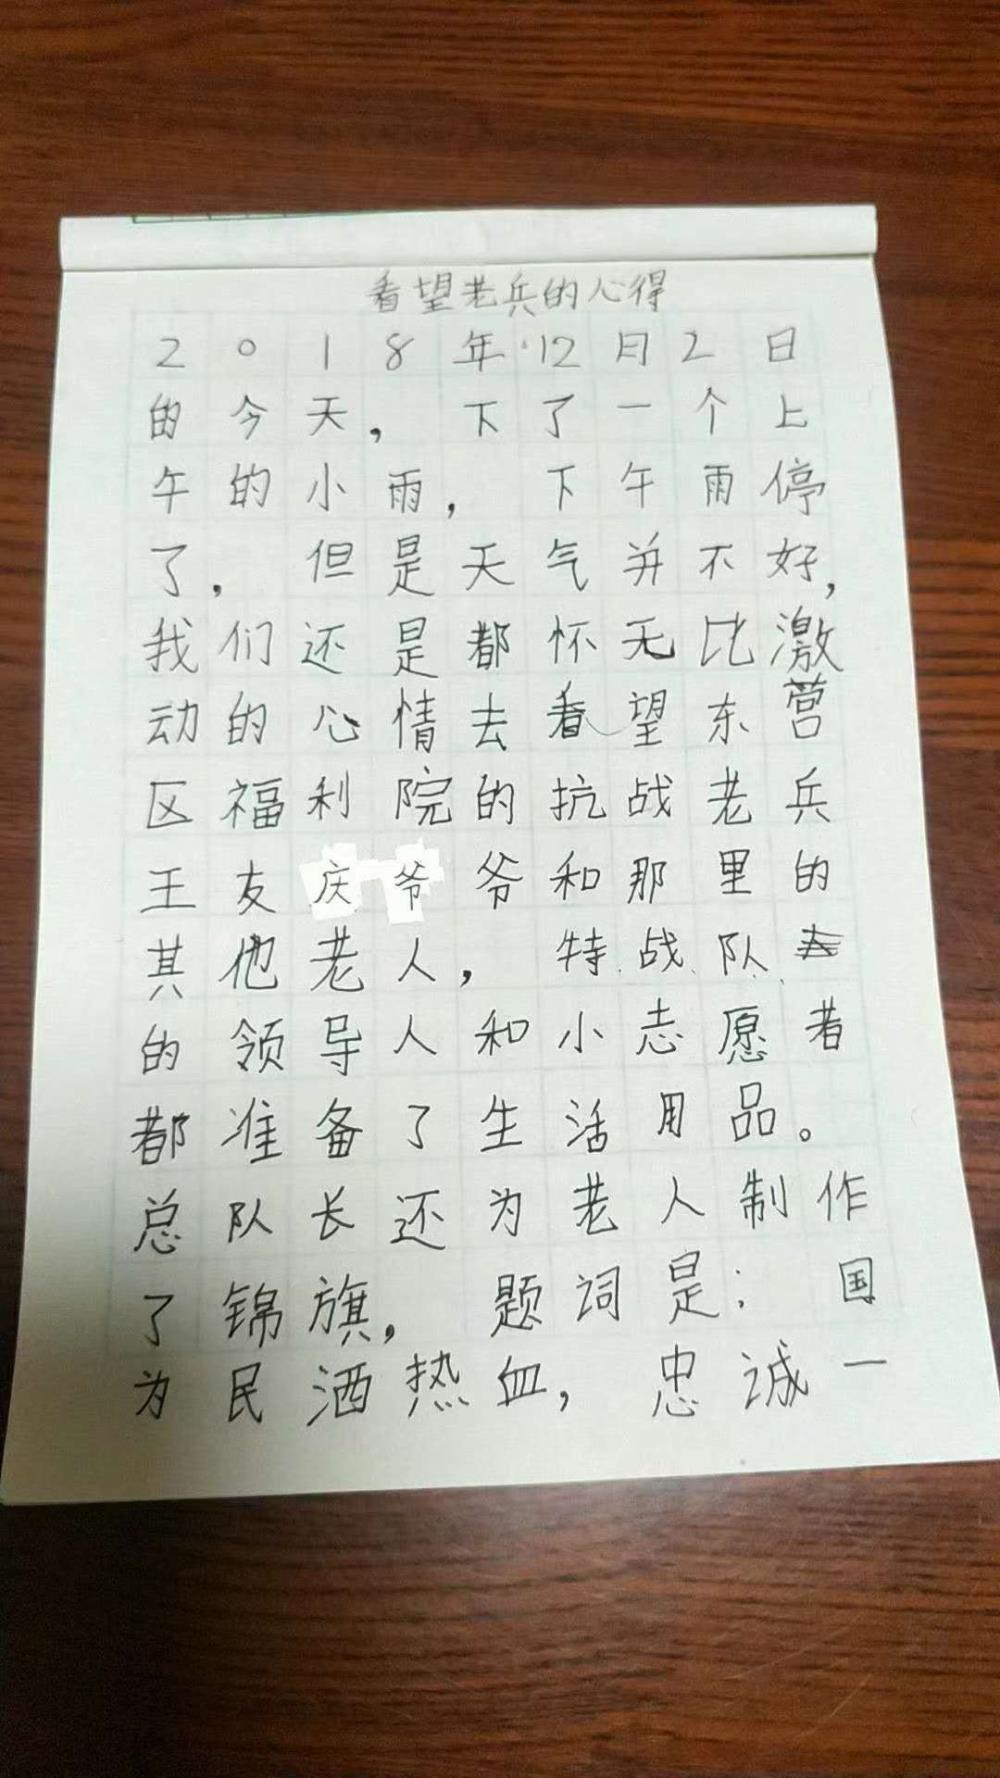 看望老兵的心得
2018年12月2日
的今天，下了一个上
午的小雨，下午雨停
了，但是天气并不好，
我们还是都怀无比激
动的心情去看望东营
区福利院的抗战老兵
王友庆爷爷和那里的
其他老人，特战队
的领导人和小志愿者
都准备了生活用品。
总队长还为老人制作
了锦旗，题词是：国
为民洒热血，忠诚一